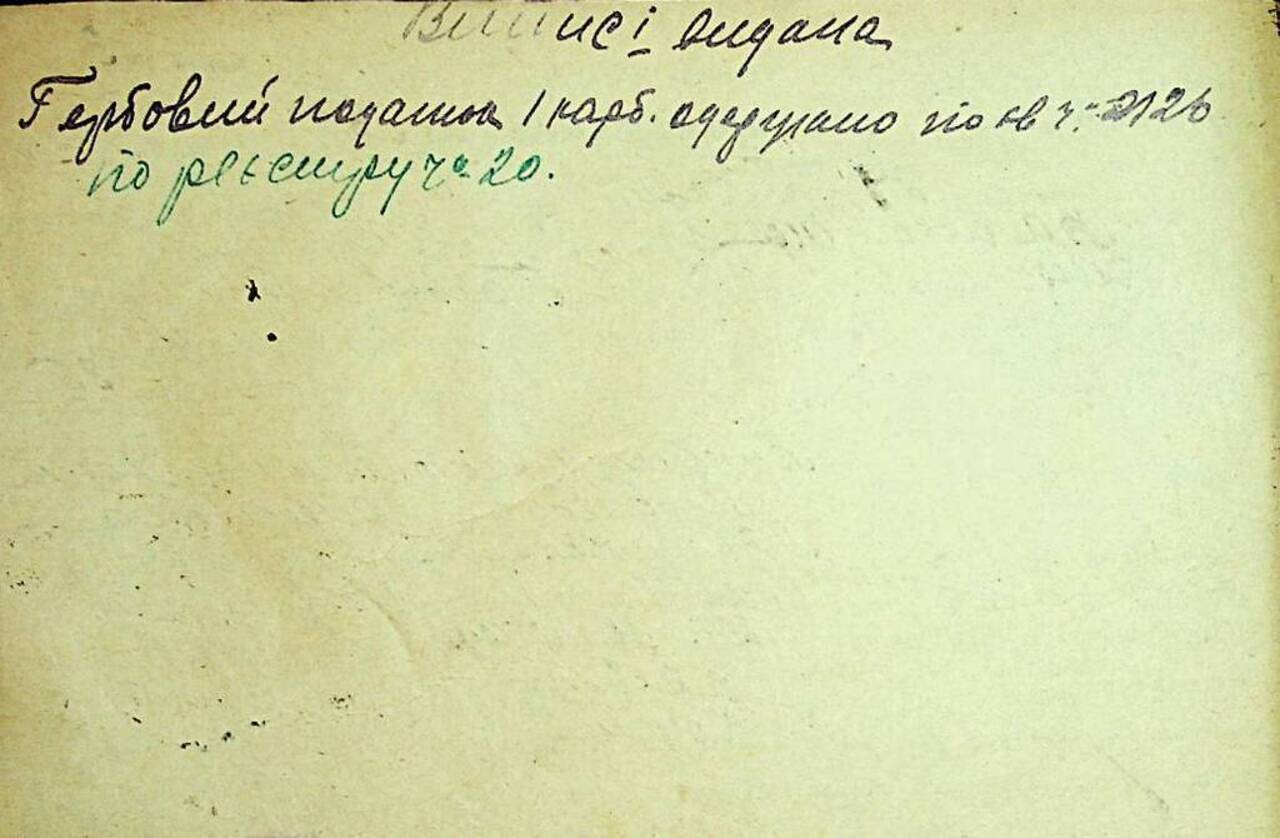 Виписі видана
Гербовий податок 1 карб. одержано по кв ч. 2126
по реєстру ча 20.